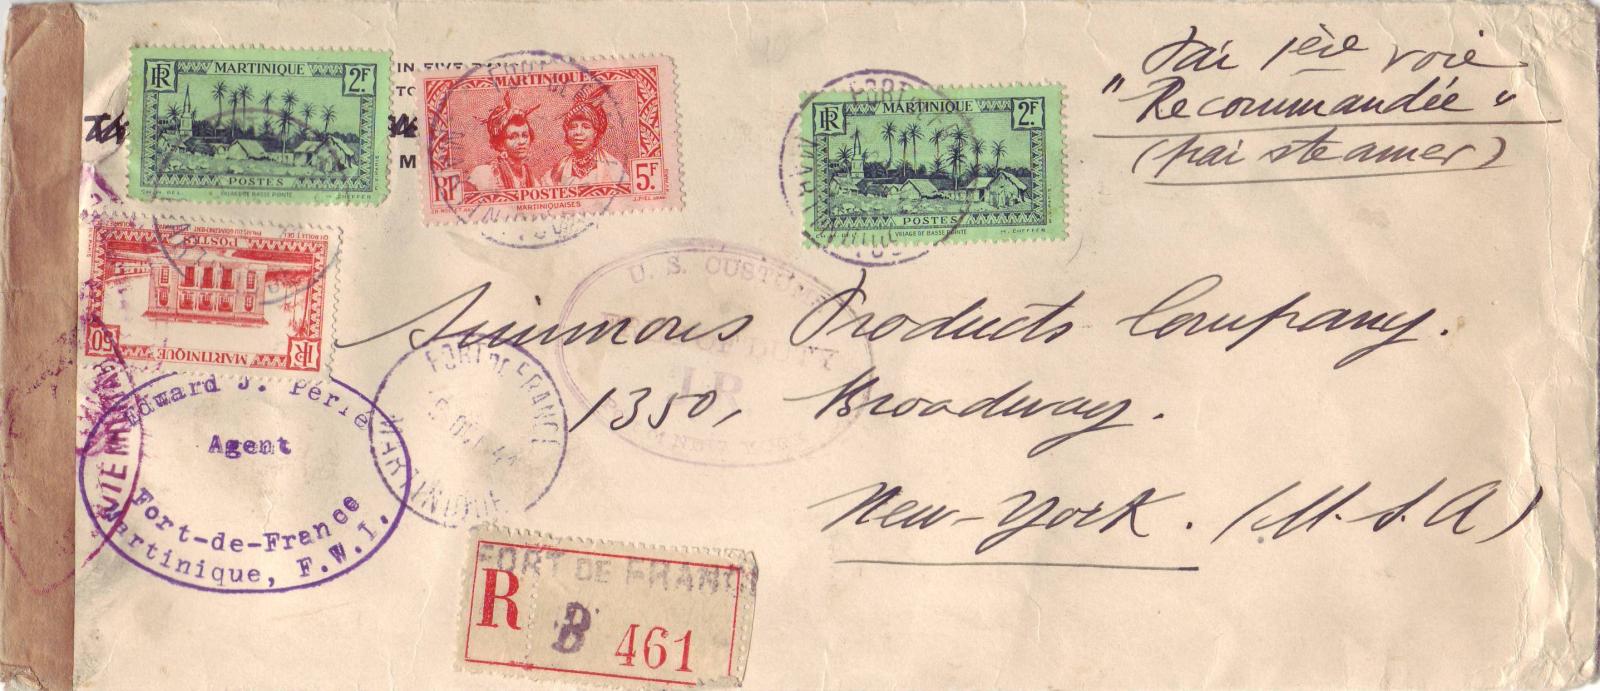 Par 1ère voie
"Recommandée"
(par steamer)
RF MARTINIQUE 2F
POSTES
VILLAGE DE BASSE POINTE
MARTINIQUE
RF POSTES 5F
MARTINIQUAISES
MARTINIQUE 2F
RF
POSTES
VILLAGE DE BASSE POINTE
POSTES
50 MARTINIQUE RF
IN FIVE
TO
M
FORT DE
U. S. CUSTOMS
Simmons Products Company.
1350, Broadway.
New-York. (U.S.A)
FORT DE FRANCE
MARTINIQUE
Edward J. Périe
Agent
Fort-de-France
Martinique, F.W.I.
FORT DE FRANCE
R B 461